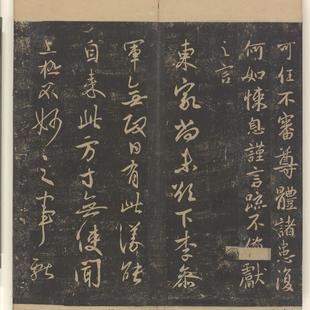 可任不審尊體諸患復
何如悚息謹言疏不獻
之言
東家尚未欲下李參
軍日有此
自來此方寸無聞
上極不之事